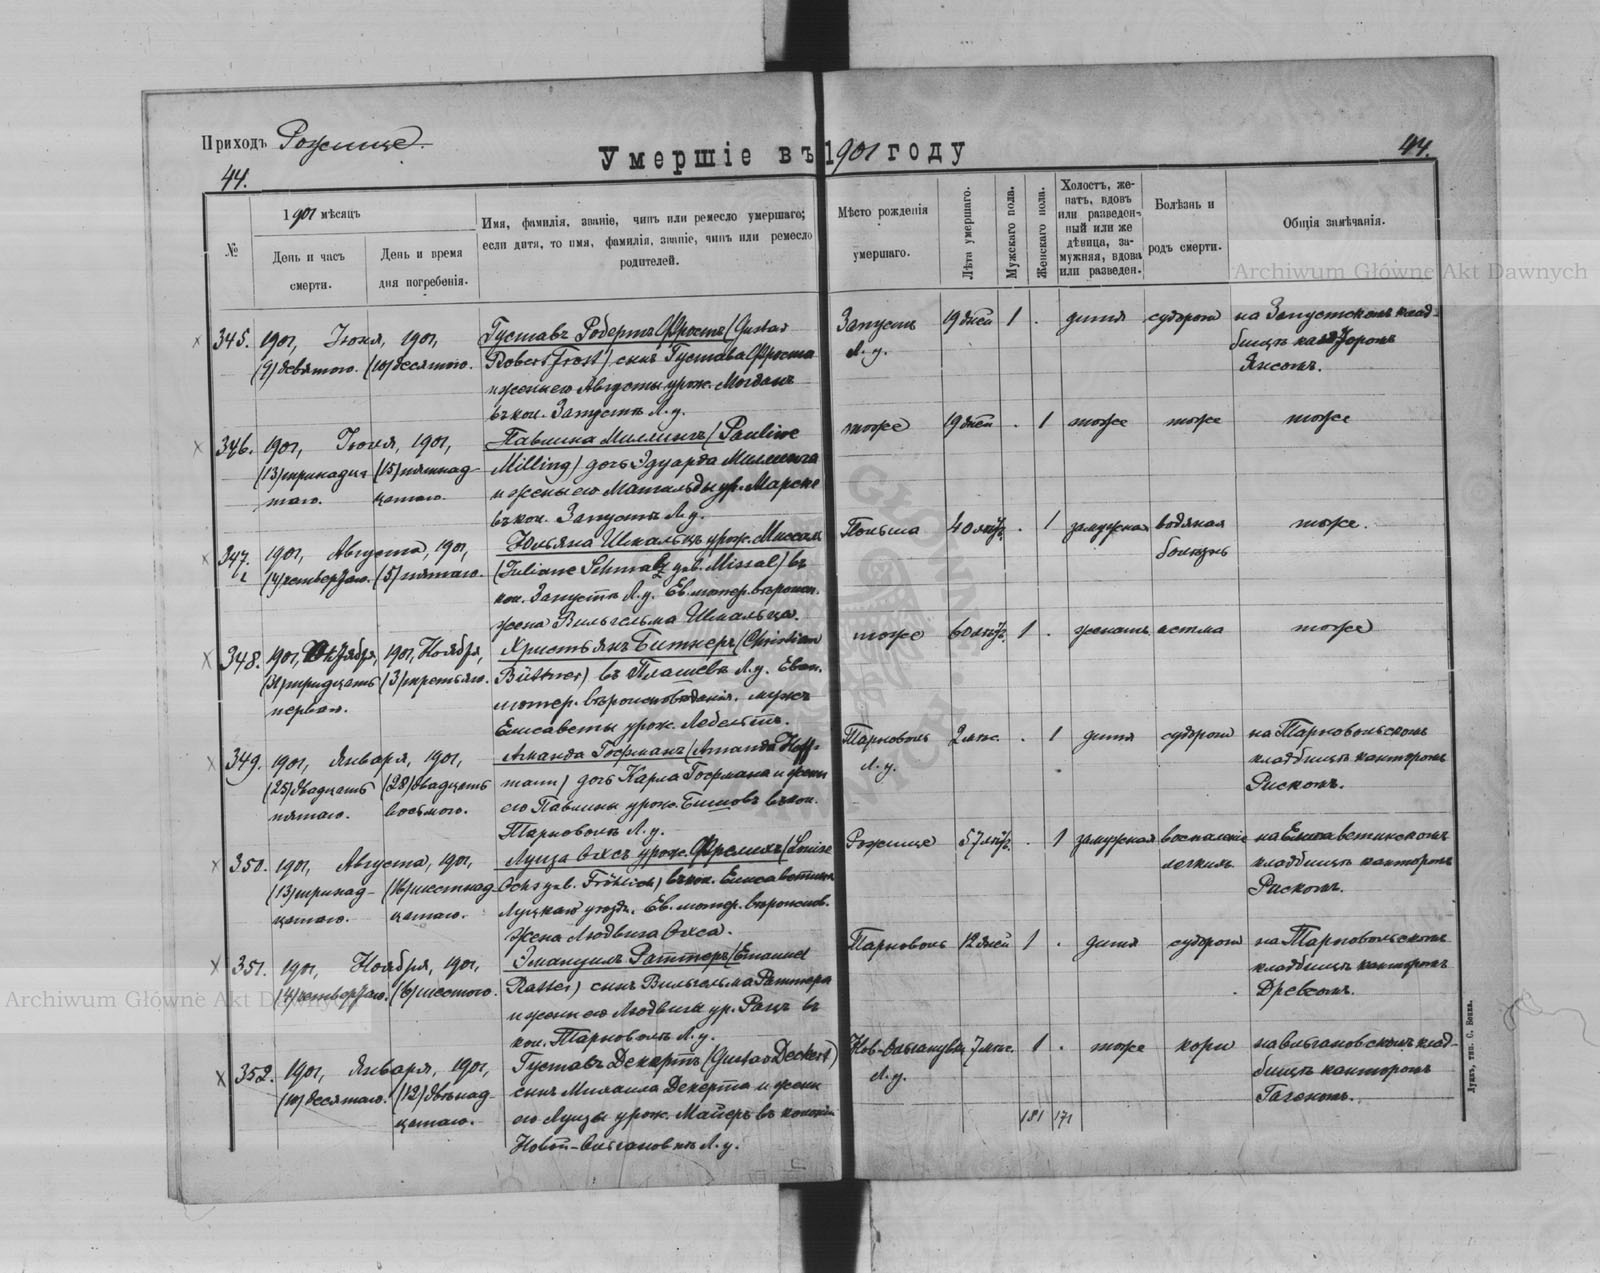 Приходъ Рожище.
Умершіе въ 1901 году
44.
44.
№
1901 мѣсяцъ
День и часъ
смерти.
День и время
дня погребенія.
Имя, фамилія, званіе, чинъ или ремесло умершаго;
если дитя, то имя, фамилія, званіе, чинъ или ремесло
родителей.
Мѣсто рожденія
умершаго.
Лѣта умершаго.
Мужскаго пола.
Женскаго пола.
Холостъ, же-
натъ, вдовъ
или разведен-
ный или же
дѣвица, за-
мужняя, вдова
или разведен.
Болѣзнь и
родъ смерти.
Общія замѣчанія.
Archiwum Główne Akt Dawnych
345. 1901, Іюня, 1901, Густавъ Робертъ Фростъ (Gustav Запустъ 19 дней 1 . дитя судороги на Запустскомъ клад-
(9) девятаго. (10) десятаго. Robert Frost) сынъ Густава Фроста Л. у. бищѣ
и жены его Августы урож. Янсомъ.
въ кол. Запустъ Л. у.
346. 1901, 1901, Павлина Миллингъ (Pauline тоже 19 дней . 1 тоже тоже тоже
(13) тринадца- (15) пятнад- Milling) дочь Эдуарда Миллинга
таго. цатаго. и жены его Матильды ур. Марске
въ кол. Запустъ Л. у.
347. 1901, Августа, 1901, Юльяна Шмальцъ урож. Миссаль Польша 40 лѣтъ . 1 замужняя водяная тоже.
(4) четвертаго. (5) пятаго. (Juliane Schmalz geb. Missal) въ болѣзнь
кол. Запустъ Л. у. Ев. лютер. вѣроисп.
жена Вильгельма Шмальца.
348. 1901, Октября, 1901, Ноября, Христьянъ Битнеръ (Christian тоже 60 лѣтъ 1 . женатъ астма тоже
(31) тридцать (3) третьяго. Büttner) въ Плашевѣ Л. у. Еван.
перваго. лютер. вѣроисповѣданія. мужъ
Елисаветы урож.
349. 1901, Января, 1901, Аманда Гофманъ (Amanda Hoff- Тарноволь 2 мѣс. . 1 дитя судороги на Тарновольскомъ
(25) двадцать (28) двадцать mann) дочь Карла Гофмана и жены Л. у. кладбищѣ канторомъ
пятаго. восьмого. его Павлины урож. въ кол. Рискомъ.
Тарноволь Л. у.
350. 1901, Августа, 1901, Луиза Охсъ урож. Фрелихъ (Louise Рожище 57 лѣтъ . 1 замужняя воспаленіе на Елисаветинскомъ
(13) тринад- (16) шестнад- Ochs geb. Fröhlich) въ кол. Елисаветинъ легкихъ кладбищѣ канторомъ
цатаго. цатаго. Луцкаго уѣзда. Ев. лютер. вѣроиспов. Рискомъ.
жена Людвига Охса.
351. 1901, Ноября, 1901, Эмануилъ Раттеръ (Emanuel Тарноволь 12 дней 1 . дитя судороги на Тарновольскомъ
(4) четвертаго. (6) шестого. Ratter) сынъ Вильгельма Раттера кладбищѣ канторомъ
и жены его Людвиги ур. Рацъ въ Древсомъ.
кол. Тарноволь Л. у.
352. 1901, Января, 1901, Густавъ Декертъ (Gustav Deckert) 7 мѣс. 1 . тоже кори
(10) десятаго. (12) двѣнад- сынъ Михаила Декерта и жены Л. у. бищѣ канторомъ
цатаго. его Луизы урож. Майеръ въ колоніи
Л. у.
181 171
Archiwum Główne Akt Dawnych
Луцкъ, тип. С. Бокка.